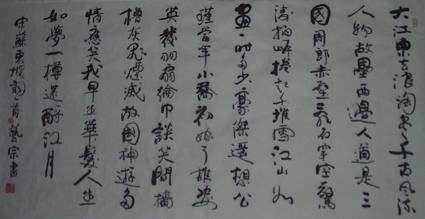 大江東去浪淘盡千古風流
人物故壘西邊人道是三
國周郎赤壁亂石穿空驚
濤拍岸捲起千堆雪江山如
畫一時多少豪傑遥想公
瑾當年小喬初嫁了雄姿
英發羽扇綸巾談笑間檣
櫓灰飛煙滅故國神遊多
情應笑我早生華髮人生
如夢一樽還酹江月
宋蘇東坡詞一首藝宗書